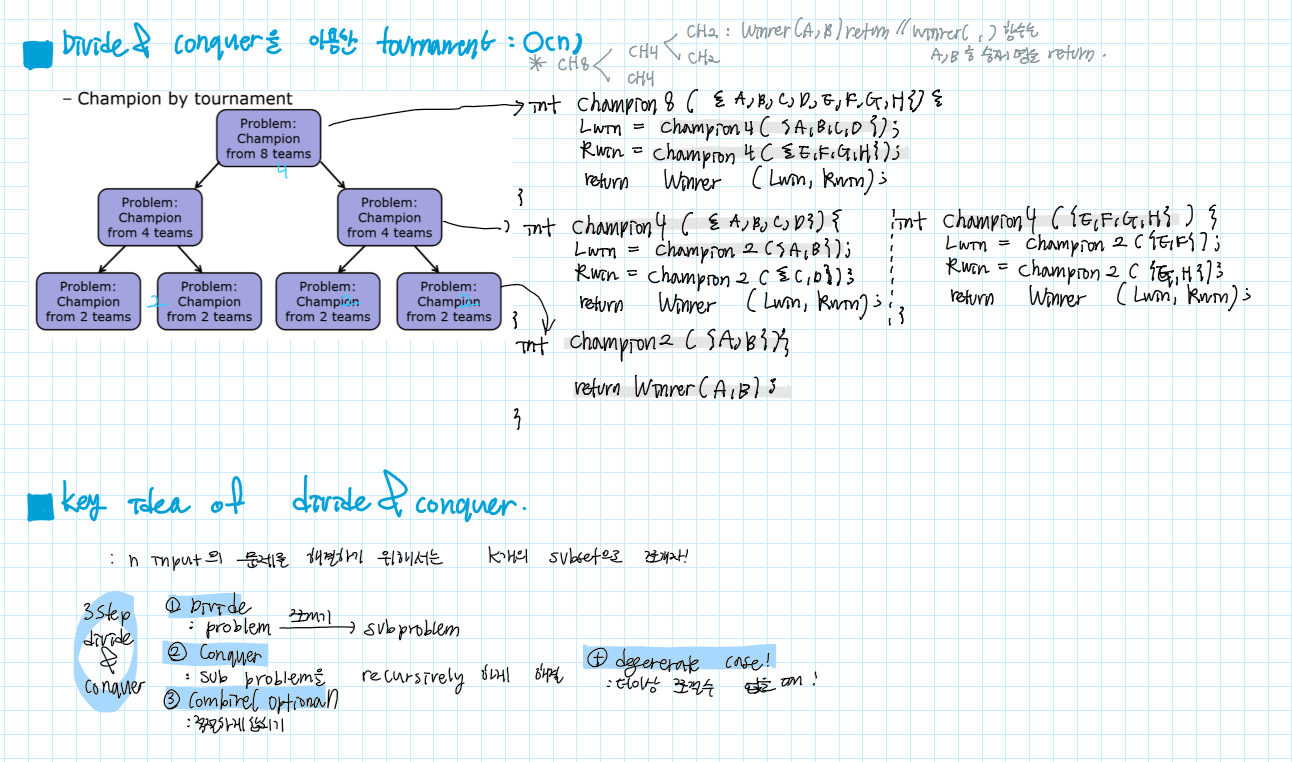 Divide & conquer을 이용한 tournament : O(n)
* CH8
CH4
CH4
CH2 : Winner(A,B) return // winner( , ) 함수는
CH2
A,B 중 승자 명을 return.
– Champion by tournament
Problem:
Champion
from 8 teams
4
Problem:
Champion
from 4 teams
Problem:
Champion
from 4 teams
Problem:
Champion
from 2 teams
2
Problem:
Champion
from 2 teams
Problem:
Champion
from 2 teams
2
Problem:
Champion
from 2 teams
2
int champion 8 ( { A,B,C,D,E,F,G,H}) {
Lwin = champion 4 ( {A,B,C,D });
Rwin = champion 4 ( {E,F,G,H});
return Winner (Lwin, Rwin);
}
int champion4 ( { A,B,C,D}) {
Lwin = champion 2 ({A,B});
Rwin = champion 2 ( {C,D});
return Winner (Lwin, Rwin);
}
int champion4 ({E,F,G,H} ) {
Lwin = champion 2 ({E,F});
Rwin = champion 2 ( {G,H});
return Winner (Lwin, Rwin);
}
int champion2 ( {A,B}){
return Winner(A,B);
}
key idea of divide & conquer.
: n input의 문제를 해결하기 위해서는 k개의 subset으로 쪼개자!
3 step
divide
&
conquer
① Divide
: problem 쪼개기 → subproblem
② Conquer
: sub problem을 recursively 하게 해결
③ Combine( optional)
: 하게 합치기
+ degenerate case!
: 더이상 쪼갤수 없을 때!